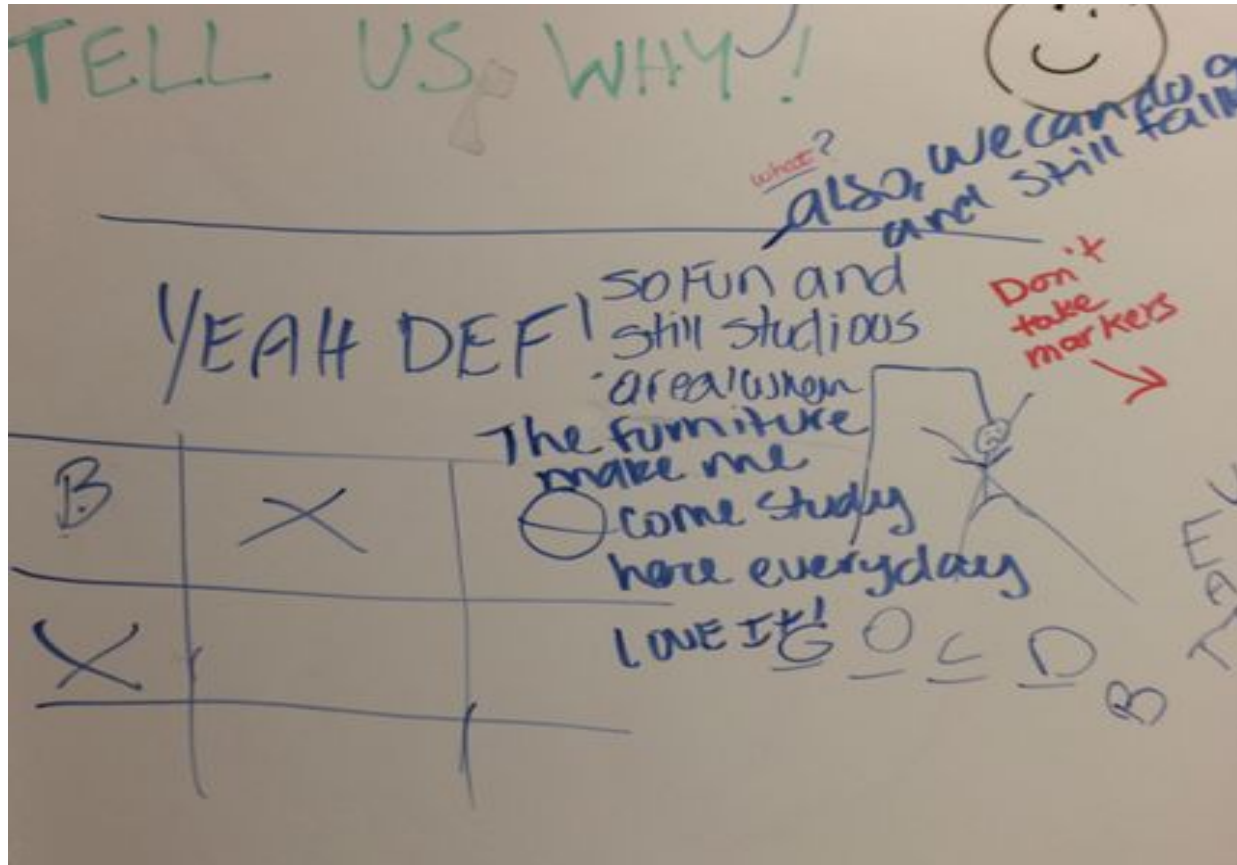 TELL US WHY!
what?
also, we can do a
and still talk
YEAH DEF!
SO FUN and
still studious
area! when
The furniture
make me
come study
here everyday
LOVE It!
Don't
take
markers
B X
X
G O L D
B